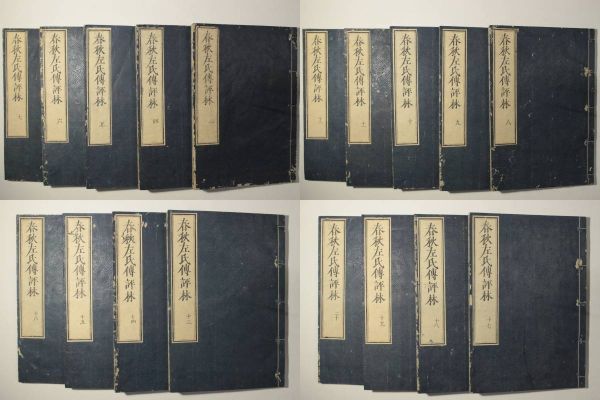 春秋左氏傳評林 七
春秋左氏傳評林 六
春秋左氏傳評林 五
春秋左氏傳評林 四
春秋左氏傳評林
春秋左氏傳評林
春秋左氏傳評林 十一
春秋左氏傳評林 十
春秋左氏傳評林 九
春秋左氏傳評林 八
春秋左氏傳評林
春秋左氏傳評林 十五
春秋左氏傳評林 十四
春秋左氏傳評林 十三
春秋左氏傳評林 二十
春秋左氏傳評林 十九
春秋左氏傳評林 十八
春秋左氏傳評林 十七